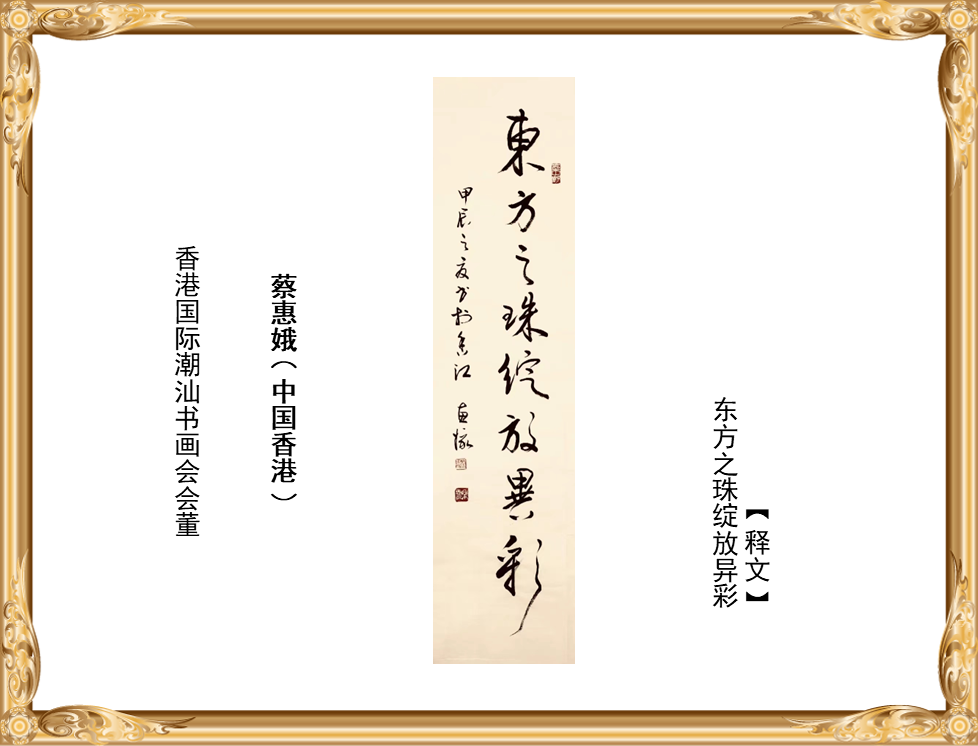 【释文】
东方之珠绽放异彩
東方之珠綻放異彩
甲辰之夏书於香江
蔡惠娥（中国香港）
香港国际潮汕书画会会董